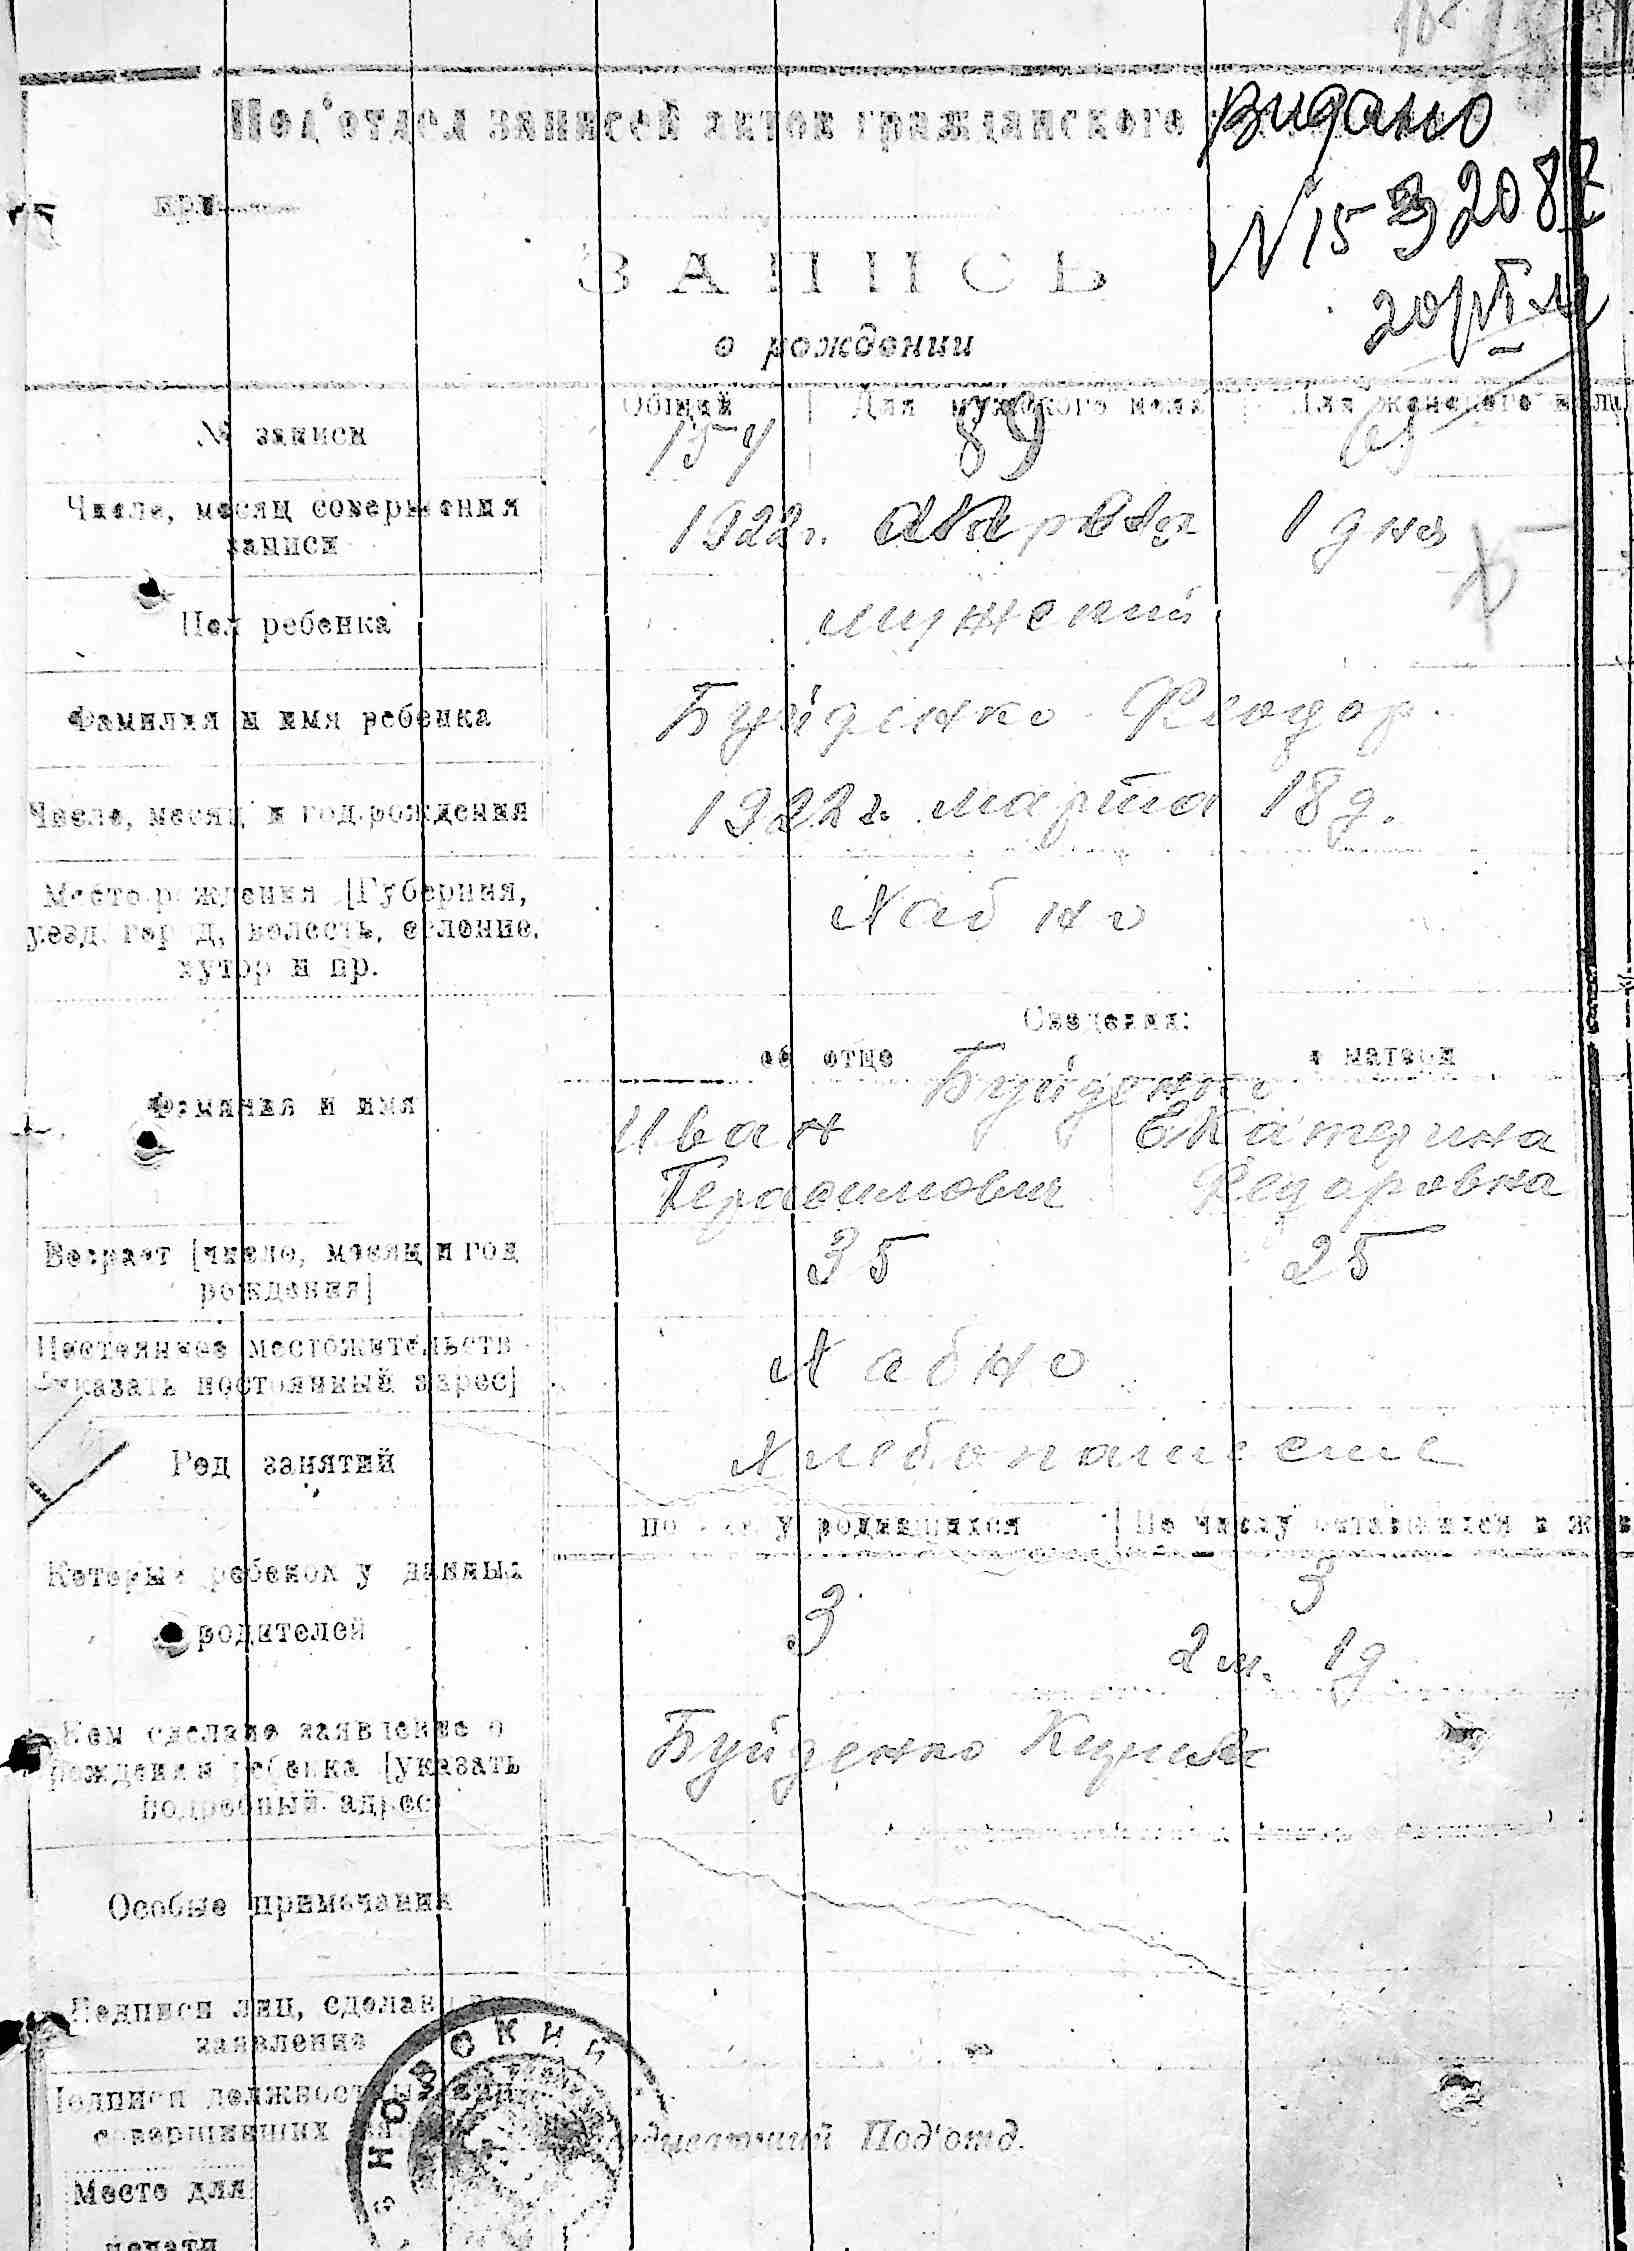 Под'отдел записей актов гражданского
Видано
при
N 15
ЗАПИСЬ
о рождении
Общий | Для мужского пола | Для женского пола
№ записи 154 89
Число, месяц совершения 1922 г. апреля 1 дня
записи
Пол ребенка мужский
Фамилия и имя ребенка Буйденко Феодор.
Число, месяц и год рождения 1922 г. марта 18 д.
Место рождения [Губерния,
уезд, город, волость, селение, Хабно
хутор и пр.
Сведения:
об отце о матери
Буйденко
Фамилия и имя Иван Екатерина
Герасимович Федоровна
Возраст [число, месяц и год 35 25
рождения]
Постоянное местожительств
указать постоянный адрес] Хабно
Род занятий Хлебопашество
по числу родившихся | По числу оставшихся в жив
Который ребенок у данных 3 3
родителей 2 м. 1 д
Кем сделано заявление о
рождении ребенка [указать Буйденко
подробный адрес
Особые примечания
Подписи лиц, сделав
заявление
НОВСКИЙ
Подписи должностных лиц
совершивших Заведывающий Под'отд.
Место для
печати